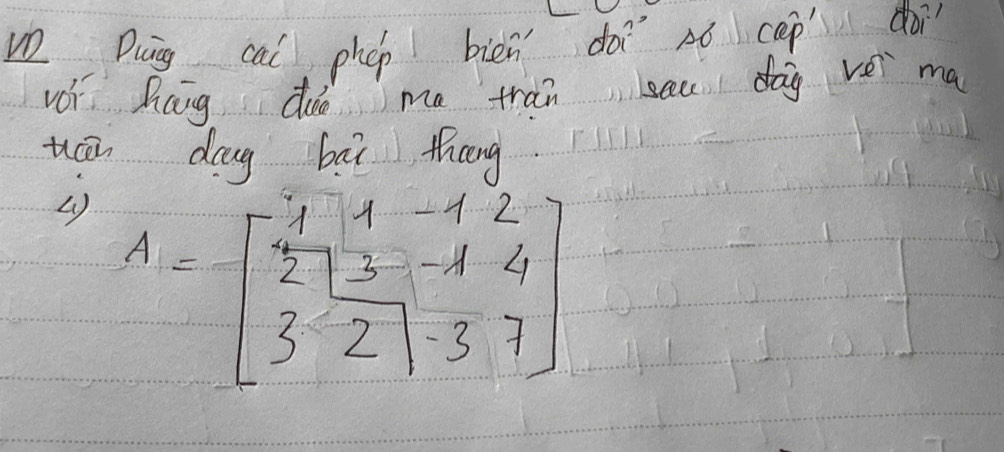 VD Dùng các phép biến đổi sơ cấp đối
với hàng đưa ma trận sau đây về ma
trận dạng bậc thang.
1) A = [ 1 1 -1 2
2 3 -1 4
3 2 -3 7 ]